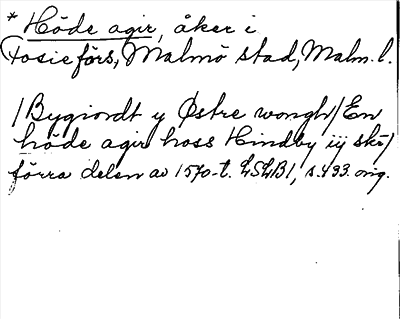 * Höde agir, åker i
Fosie förs, Malmö stad, Malm. l.
/Bygiordt y Østre wongh/En
höde agir hoss Hindby iij skr/
förra delen av 1570-t. LSLB1, s. 493. orig.